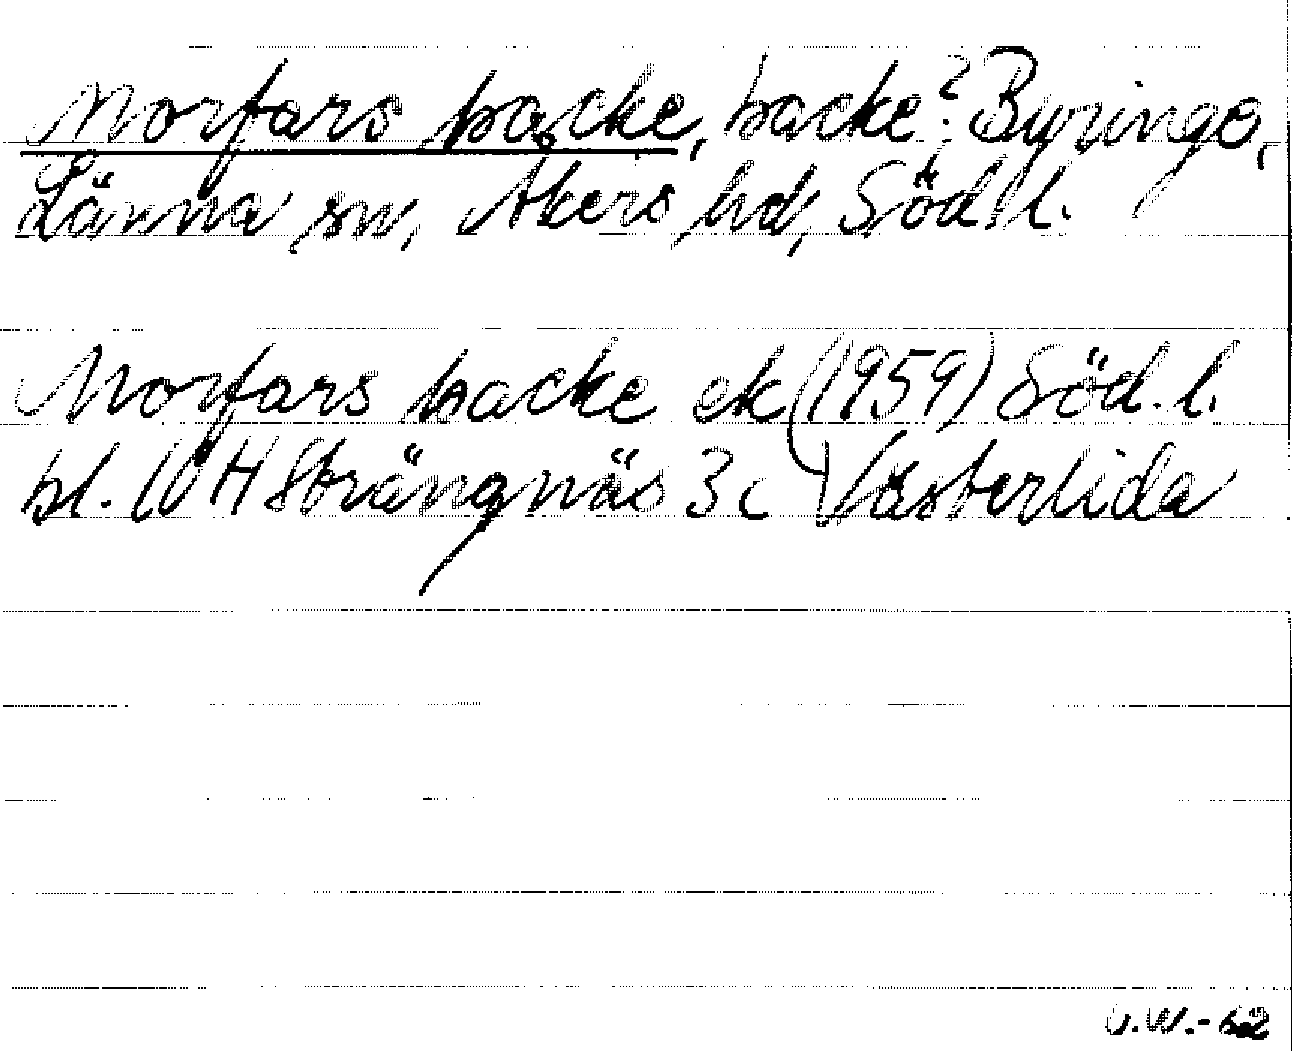 Morfars backe, backe? Byringe,
Länna sn, Åkers hd, Södl.
Morfars backe ek (1959) Söd.l.
bl. 10 H Strängnäs 3c Västerlida